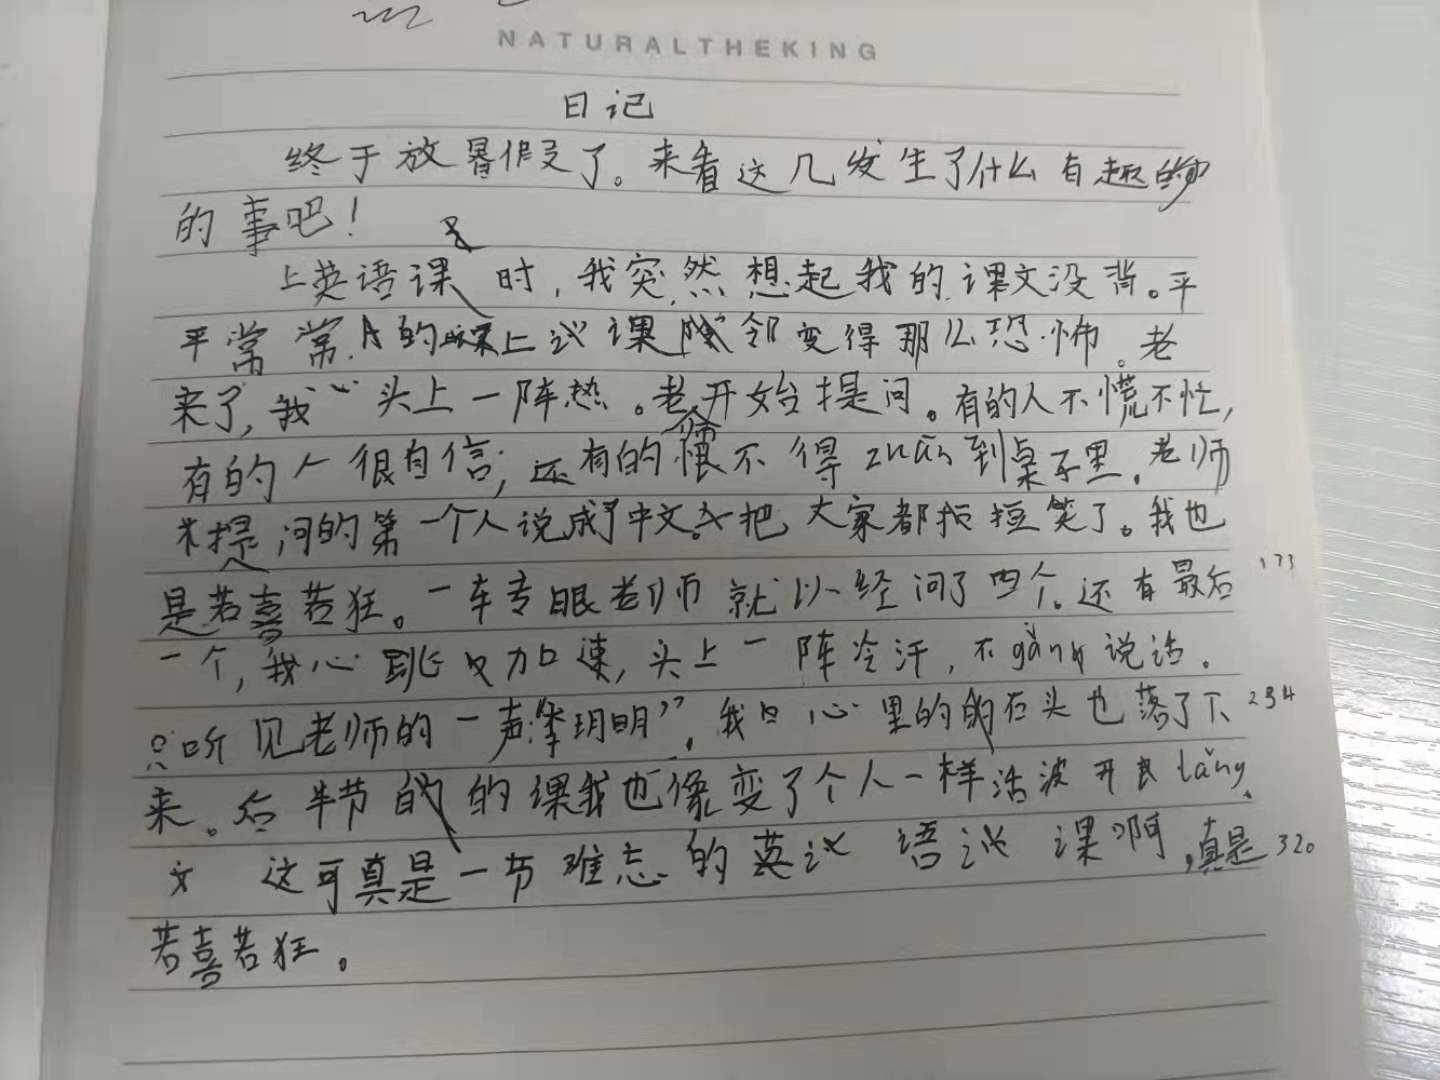 NATURALTHEKING
日记
终于放暑假了。来看这几发生了什么有趣
的事吧!
上英语课时,我突然想起我的课文没背。平
平常常的课变得那么恐怖。老
来了,我头上一阵热。老师开始提问。有的人不慌不忙,
有的人很自信;还有的恨不得zuān到桌子里。老师
提问的第一个人说成了中文。把大家都笑了。我也
是若喜若狂。一车专眼老师就以经问了四个。还有最后 173
一个,我心跳又加速,头上一阵冷汗,不gǎng说话。
只听见老师的一声“李玥明”。我心里的石头也落了下 294
来。后半节的课我也像变了个人一样活波开lǎng.
这可真是一节难忘的英语课啊,真是 320
若喜若狂。